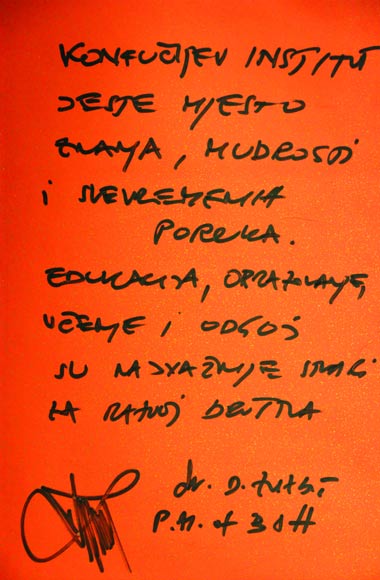 KONFUČIJEV INSTITUT
JESTE MJESTO
ZNANJA, MUDROSTI
I SVEVREMENIH
PORUKA.
EDUKACIJA, OBRAZOVANJE,
UČENJE I ODGOJ
SU NAJVAŽNIJE STVARI
ZA RAZVOJ DRUŠTVA
dr. D. Zvizdić
P.M. of BiH